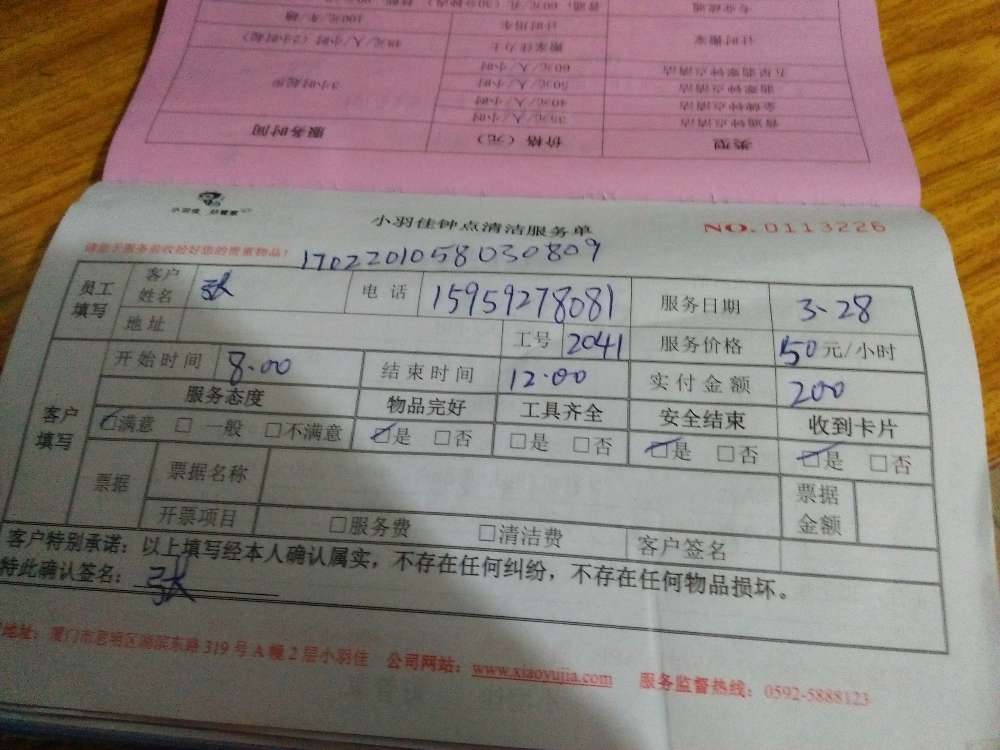 类型 价格（元） 服务时间
普通钟点清洁 35元/人/小时 3小时起步
金牌钟点清洁 40元/人/小时
翡翠钟点清洁 50元/人/小时
五星翡翠钟点清洁 60元/人/小时
计时搬家 搬家佳力士 48元/人/小时（2小时起）
计时用车 100元/车/趟
专业疏通
小羽佳 好管家
小羽佳钟点清洁服务单 NO. 0113226
请您于服务前收捡好您的贵重物品！ 1702201058030809
员工填写 客户姓名 张 电话 15959278081 服务日期 3-28
地址 工号 2041 服务价格 50元/小时
客户填写 开始时间 8.00 结束时间 12.00 实付金额 200
服务态度 物品完好 工具齐全 安全结束 收到卡片
☑满意 □ 一般 □不满意 ☑是 □否 □是 □否 ☑是 □否 ☑是 □否
票据 票据名称 票据金额
开票项目 □服务费 □清洁费 客户签名
客户特别承诺：以上填写经本人确认属实，不存在任何纠纷，不存在任何物品损坏。
特此确认签名： 张
地址：厦门市思明区湖滨东路319号A幢2层小羽佳 公司网站：www.xiaoyujia.com 服务监督热线：0592-5888123